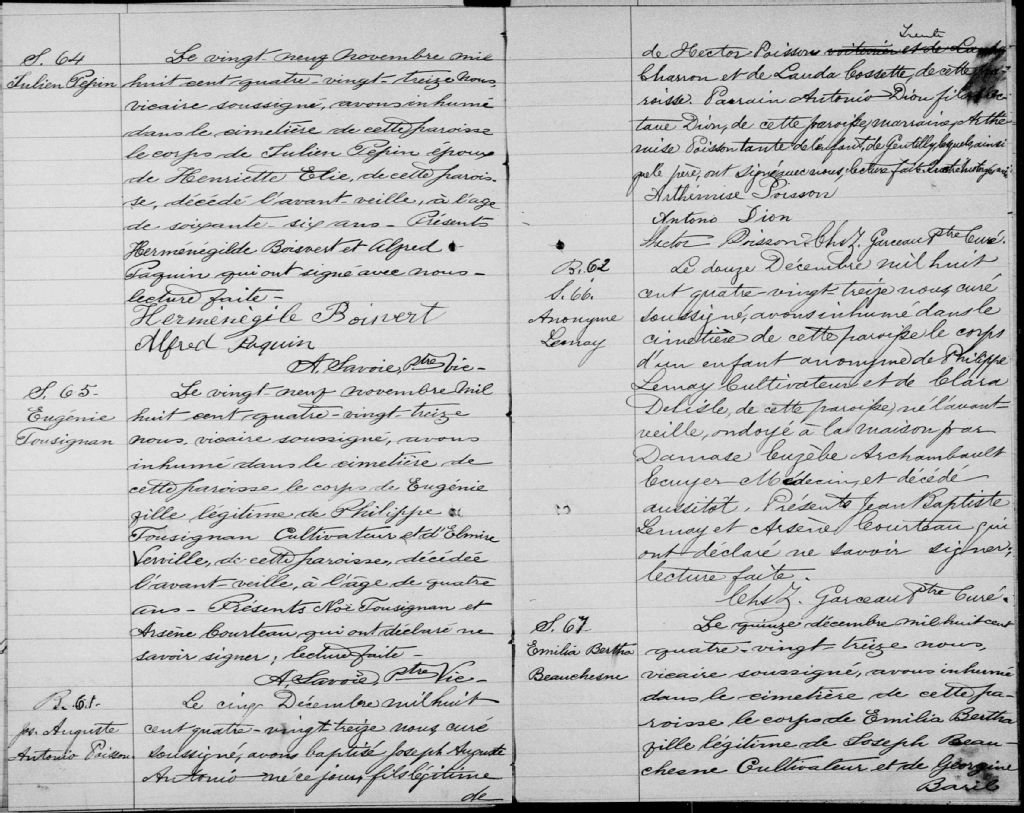 S. 64
Julien Pepin
Le vingt neuf novembre mil
huit cent quatre-vingt-treize nous,
vicaire soussigné, avons inhumé
dans le cimetière de cette paroisse
le corps de Julien Pepin époux
de Henriette Elie, de cette parois-
se, décédé l'avant-veille, à l'âge
de soixante-six ans - Présents
Herménégilde Boisvert et Alfred
Paquin qui ont signé avec nous -
lecture faite -
Herménégile Boisvert
Alfred Paquin
A. Savoie, Ptre Vic -
S. 65 -
Eugénie
Tousignan
Le vingt-neuf novembre mil
huit cent quatre-vingt-treize
nous, vicaire soussigné, avons
inhumé dans le cimetière de
cette paroisse le corps de Eugénie
fille légitime de Philippe
Tousignan Cultivateur et d'Elmire
Verville, de cette paroisse, décédée
l'avant veille, à l'âge de quatre
ans - Présents Noé Tousignan et
Arsène Courteau, qui ont déclaré ne
savoir signer; lecture faite -
A. Savoie, Ptre Vic -
B. 61 -
Jos. Auguste
Antonio Poisson
Le cinq Décembre mil huit
cent quatre-vingt treize nous curé
soussigné, avons baptisé Joseph Auguste
Antonio né ce jour, fils légitime
de
de Hector Poisson voiturier et de
Charron et de Lauda Cossette, de cette pa-
roisse. Parrain Antonio Dion fils d'Oc-
tave Dion, de cette paroisse, marraine, Arthé-
mise Poisson tante de l'enfant, de Gentilly, lesquels, ainsi
que le père, ont signé avec nous, lecture faite.
Arthémise Poisson
Antono Dion
Hector Poisson. Chs Z. Garceau Ptre Curé.
B. 62
S. 66.
Anonyme
Lemay
Le douze Décembre mil huit
cent quatre-vingt-treize nous, curé
soussigné, avons inhumé dans le
cimetière de cette paroisse le corps
d'un enfant anonyme de Philippe
Lemay Cultivateur et de Clara
Delisle, de cette paroisse, né l'avant-
veille, ondoyé à la maison par
Damase Euzèbe Archambault
Ecuyer Médecin, et décédé
aussitôt. Présents Jean Baptiste
Lemay et Arsène Courteau qui
ont déclaré ne savoir signer;
lecture faite.
Chs Z. Garceau Ptre Curé.
S. 67 -
Emilia Bertha
Beauchesne
Le quinze décembre mil huit cent
quatre-vingt-treize nous,
vicaire soussigné, avons inhumé
dans le cimetière de cette pa-
roisse le corps de Emilia Bertha
fille légitime de Joseph Beau-
chesne Cultivateur et de Georgine
Baril